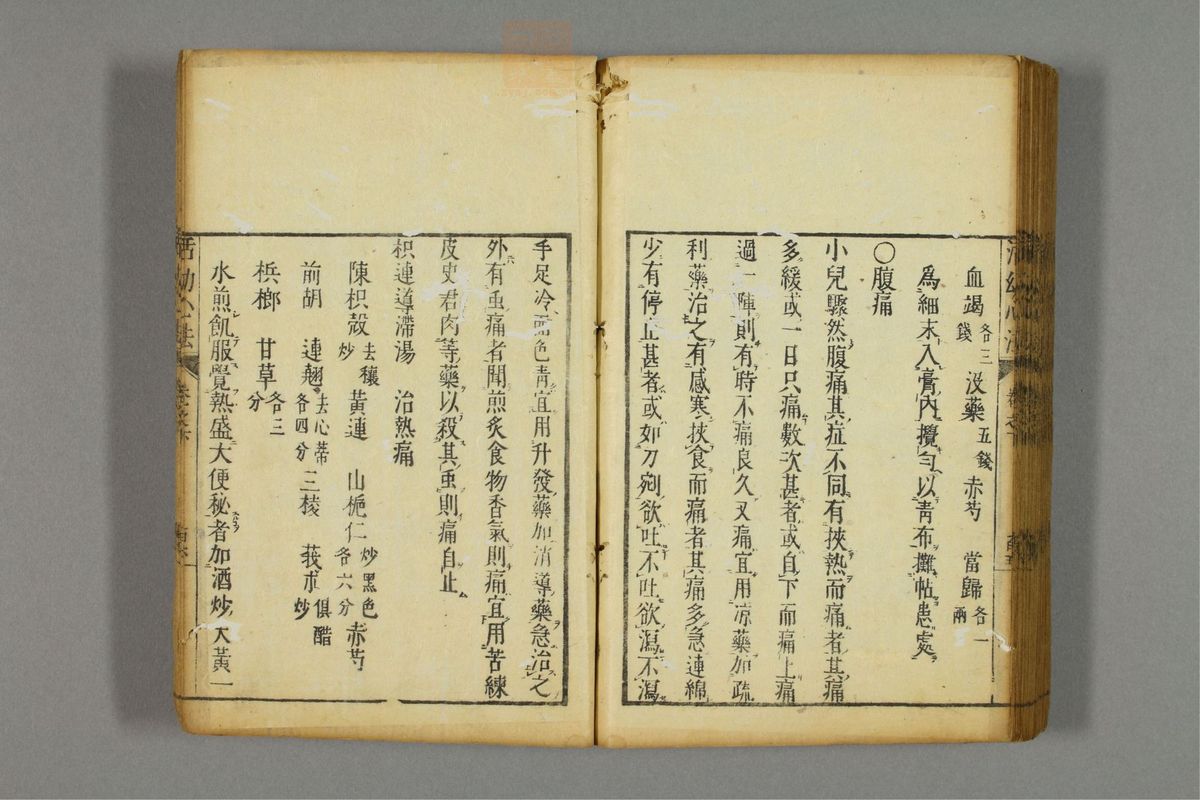 血竭各三錢 沒藥五錢 赤芍 當歸各一兩
為細末入膏內攪勻以青布攤帖患處
〇腹痛
小兒驟然腹痛其症不同有挾熱而痛者其痛
多緩或一日只痛數次甚者或自下而痛上痛
過一陣則有時不痛良久又痛宜用凉藥加疏
利藥治之有感寒挾食而痛者其痛多急連綿
少有停止甚者或如刀剜欲吐不吐欲瀉不瀉
手足冷而色青宜用升發藥加消導藥急治之
外有虫痛者聞煎炙食物香氣則痛宜用苦練
皮史君肉等藥以殺其虫則痛自止
枳連導滯湯 治熱痛
陳枳殼去穰炒 黃連 山梔仁炒黑色各六分 赤芍
前胡 連翹去心蒂各四分 三棱 莪朮俱醋炒
梹榔 甘草各三分
水煎飢服覺熱盛大便秘者加酒炒大黃一
活幼心法 卷之下